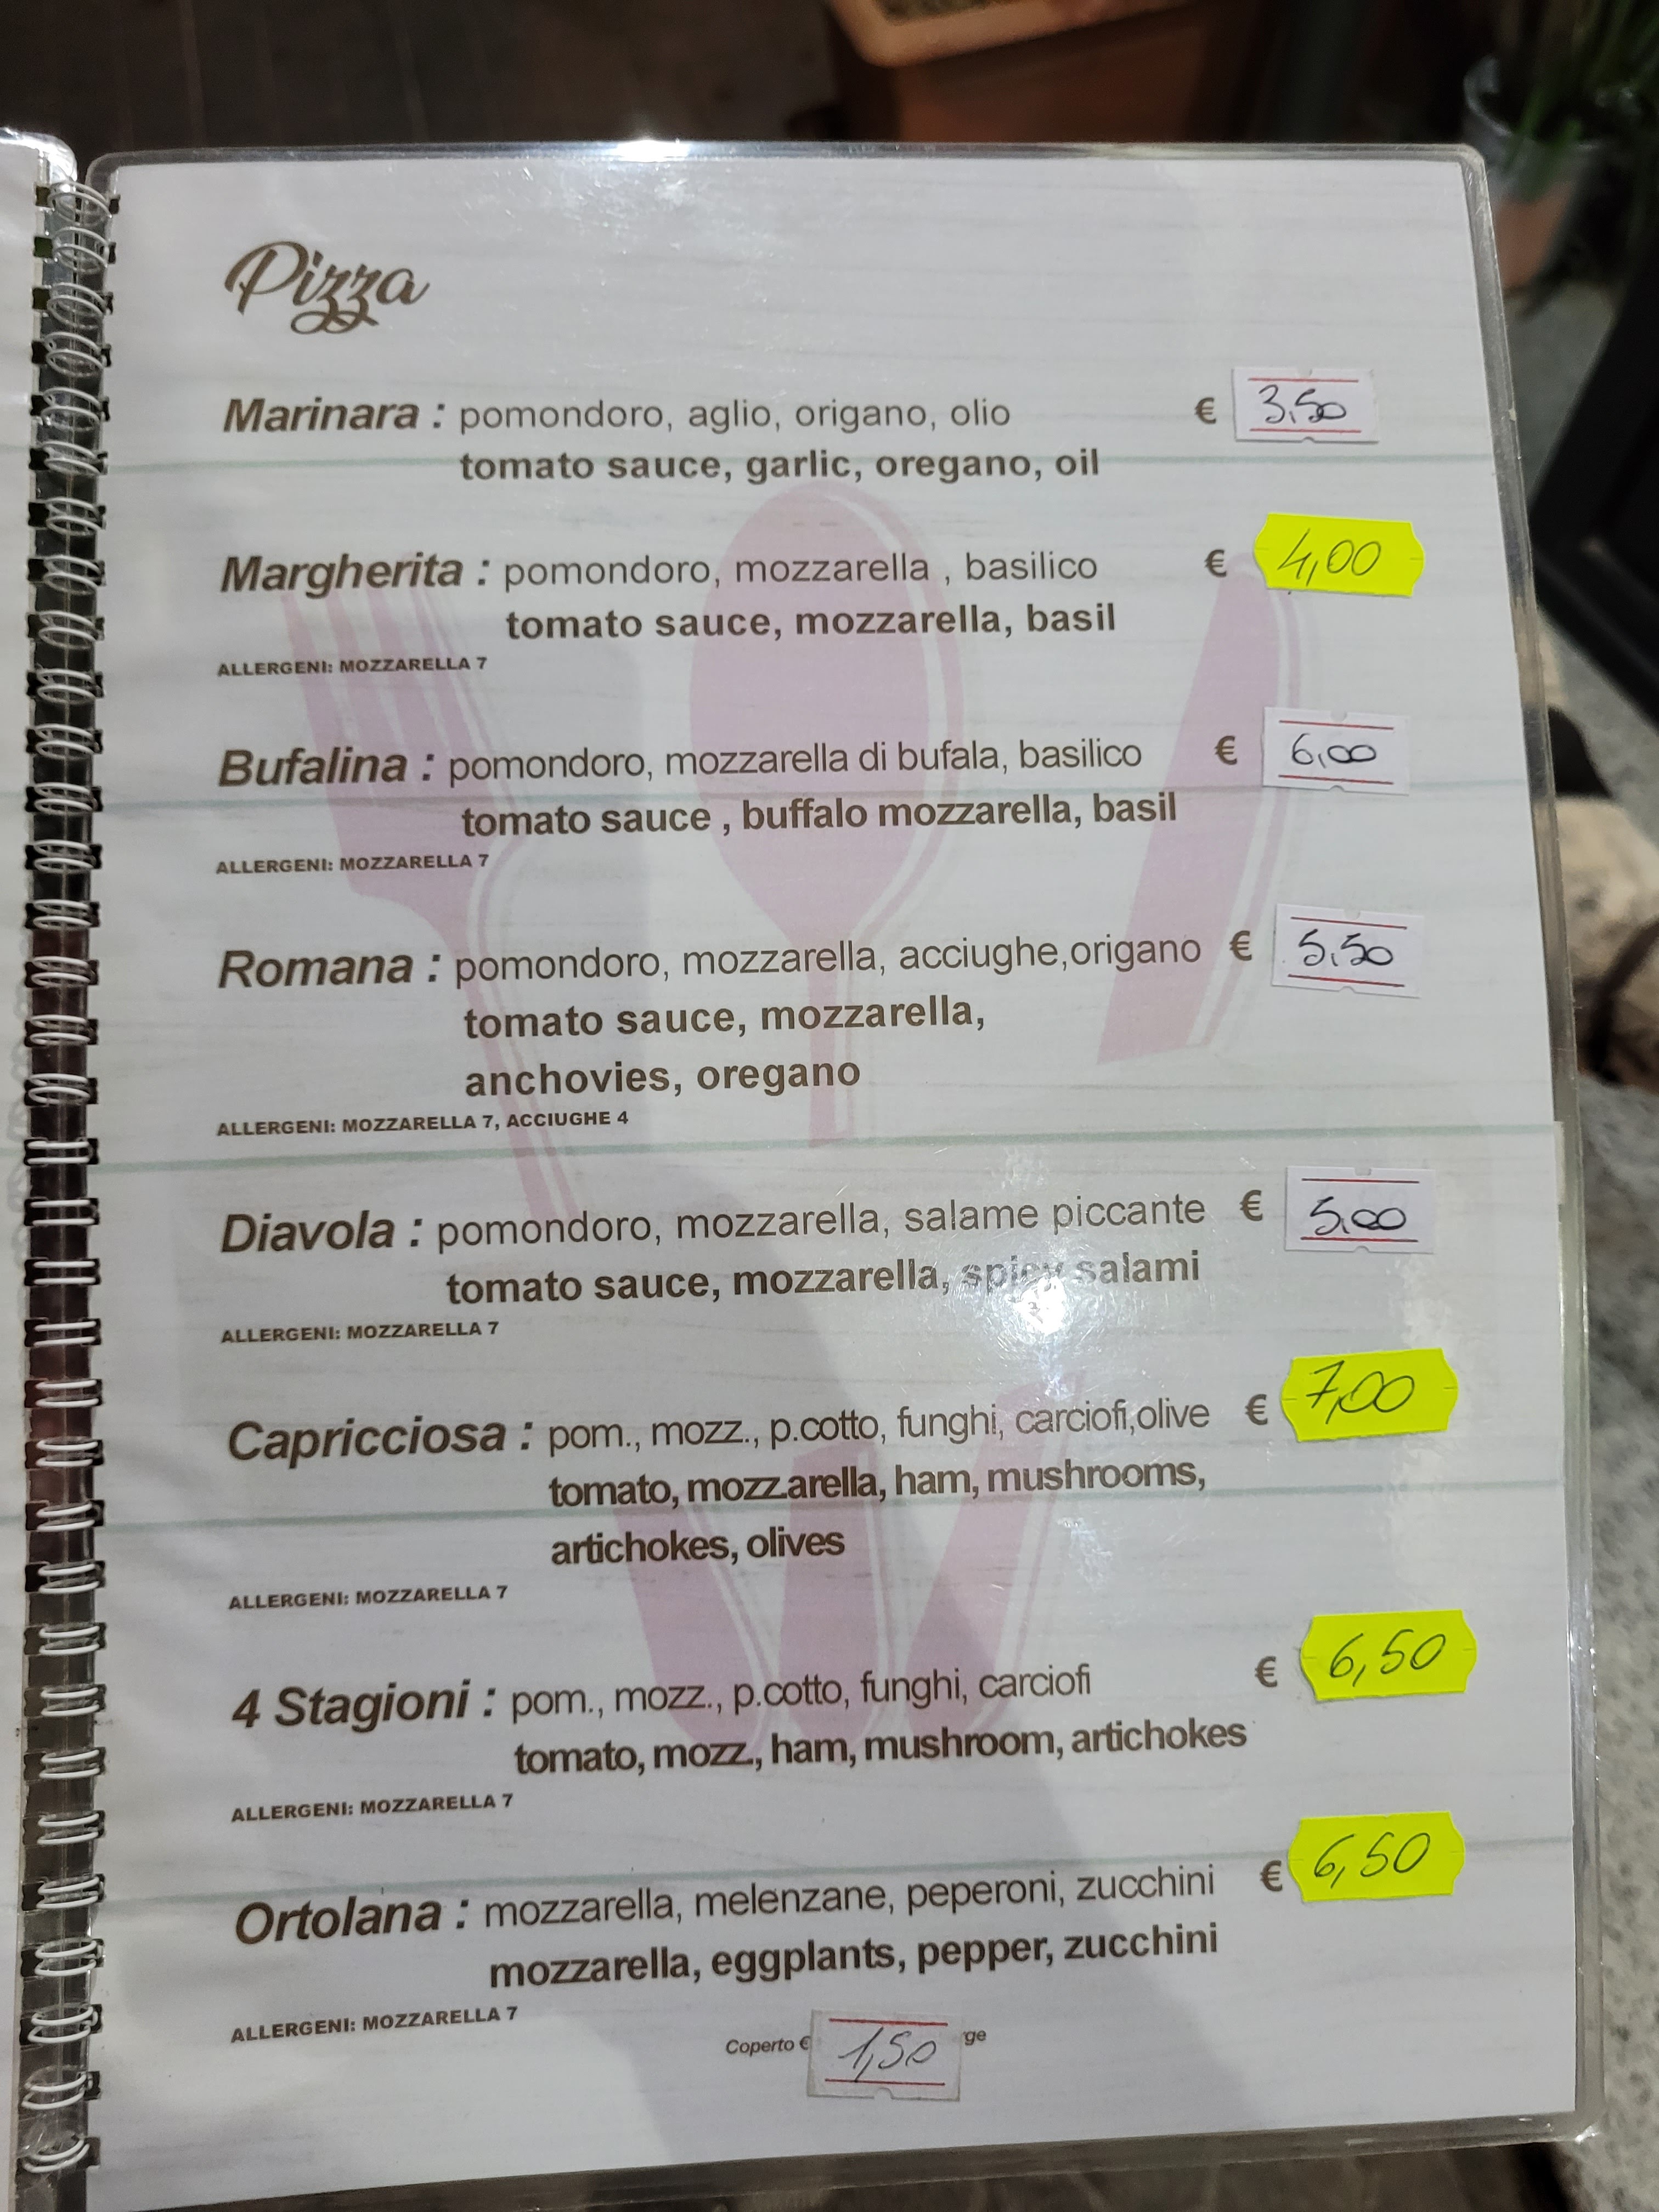 Pizza
Marinara : pomondoro, aglio, origano, olio € 3,50
tomato sauce, garlic, oregano, oil
Margherita : pomondoro, mozzarella , basilico € 4,00
tomato sauce, mozzarella, basil
ALLERGENI: MOZZARELLA 7
Bufalina : pomondoro, mozzarella di bufala, basilico € 6,00
tomato sauce , buffalo mozzarella, basil
ALLERGENI: MOZZARELLA 7
Romana : pomondoro, mozzarella, acciughe,origano € 5,50
tomato sauce, mozzarella,
anchovies, oregano
ALLERGENI: MOZZARELLA 7, ACCIUGHE 4
Diavola : pomondoro, mozzarella, salame piccante € 5,00
tomato sauce, mozzarella, spicy salami
ALLERGENI: MOZZARELLA 7
Capricciosa : pom., mozz., p.cotto, funghi, carciofi,olive € 7,00
tomato, mozzarella, ham, mushrooms,
artichokes, olives
ALLERGENI: MOZZARELLA 7
4 Stagioni : pom., mozz., p.cotto, funghi, carciofi € 6,50
tomato, mozz., ham, mushroom, artichokes
ALLERGENI: MOZZARELLA 7
Ortolana : mozzarella, melenzane, peperoni, zucchini € 6,50
mozzarella, eggplants, pepper, zucchini
ALLERGENI: MOZZARELLA 7
Coperto € 1,50 ge